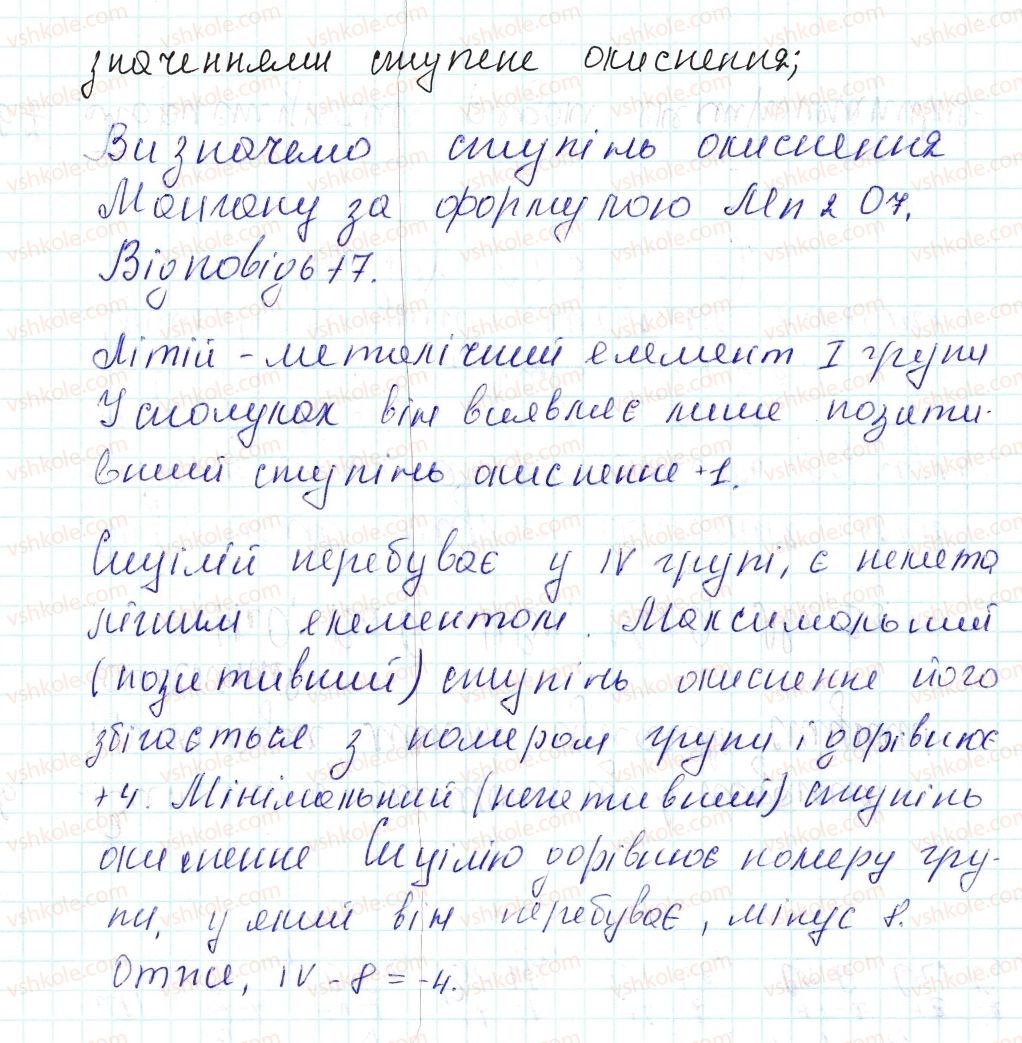 значеннями ступеня окиснення;
Визначемо ступінь окиснення
Мангану за формулою Mn2O7.
Відповідь +7.
Літій - металічний елемент I групи
У сполуках він виявляє лише позити-
вний ступінь окиснення +1.
Силілій перебуває у IV групі, є немета
лічним елементом. Максимальний
(позитивний) ступінь окиснення його
збігається з номером групи і дорівнює
+4. Мінімальний (негативний) ступінь
окиснення Силілію дорівнює номеру гру-
пи, у якій він перебуває, мінус 8.
Отже, IV - 8 = -4.